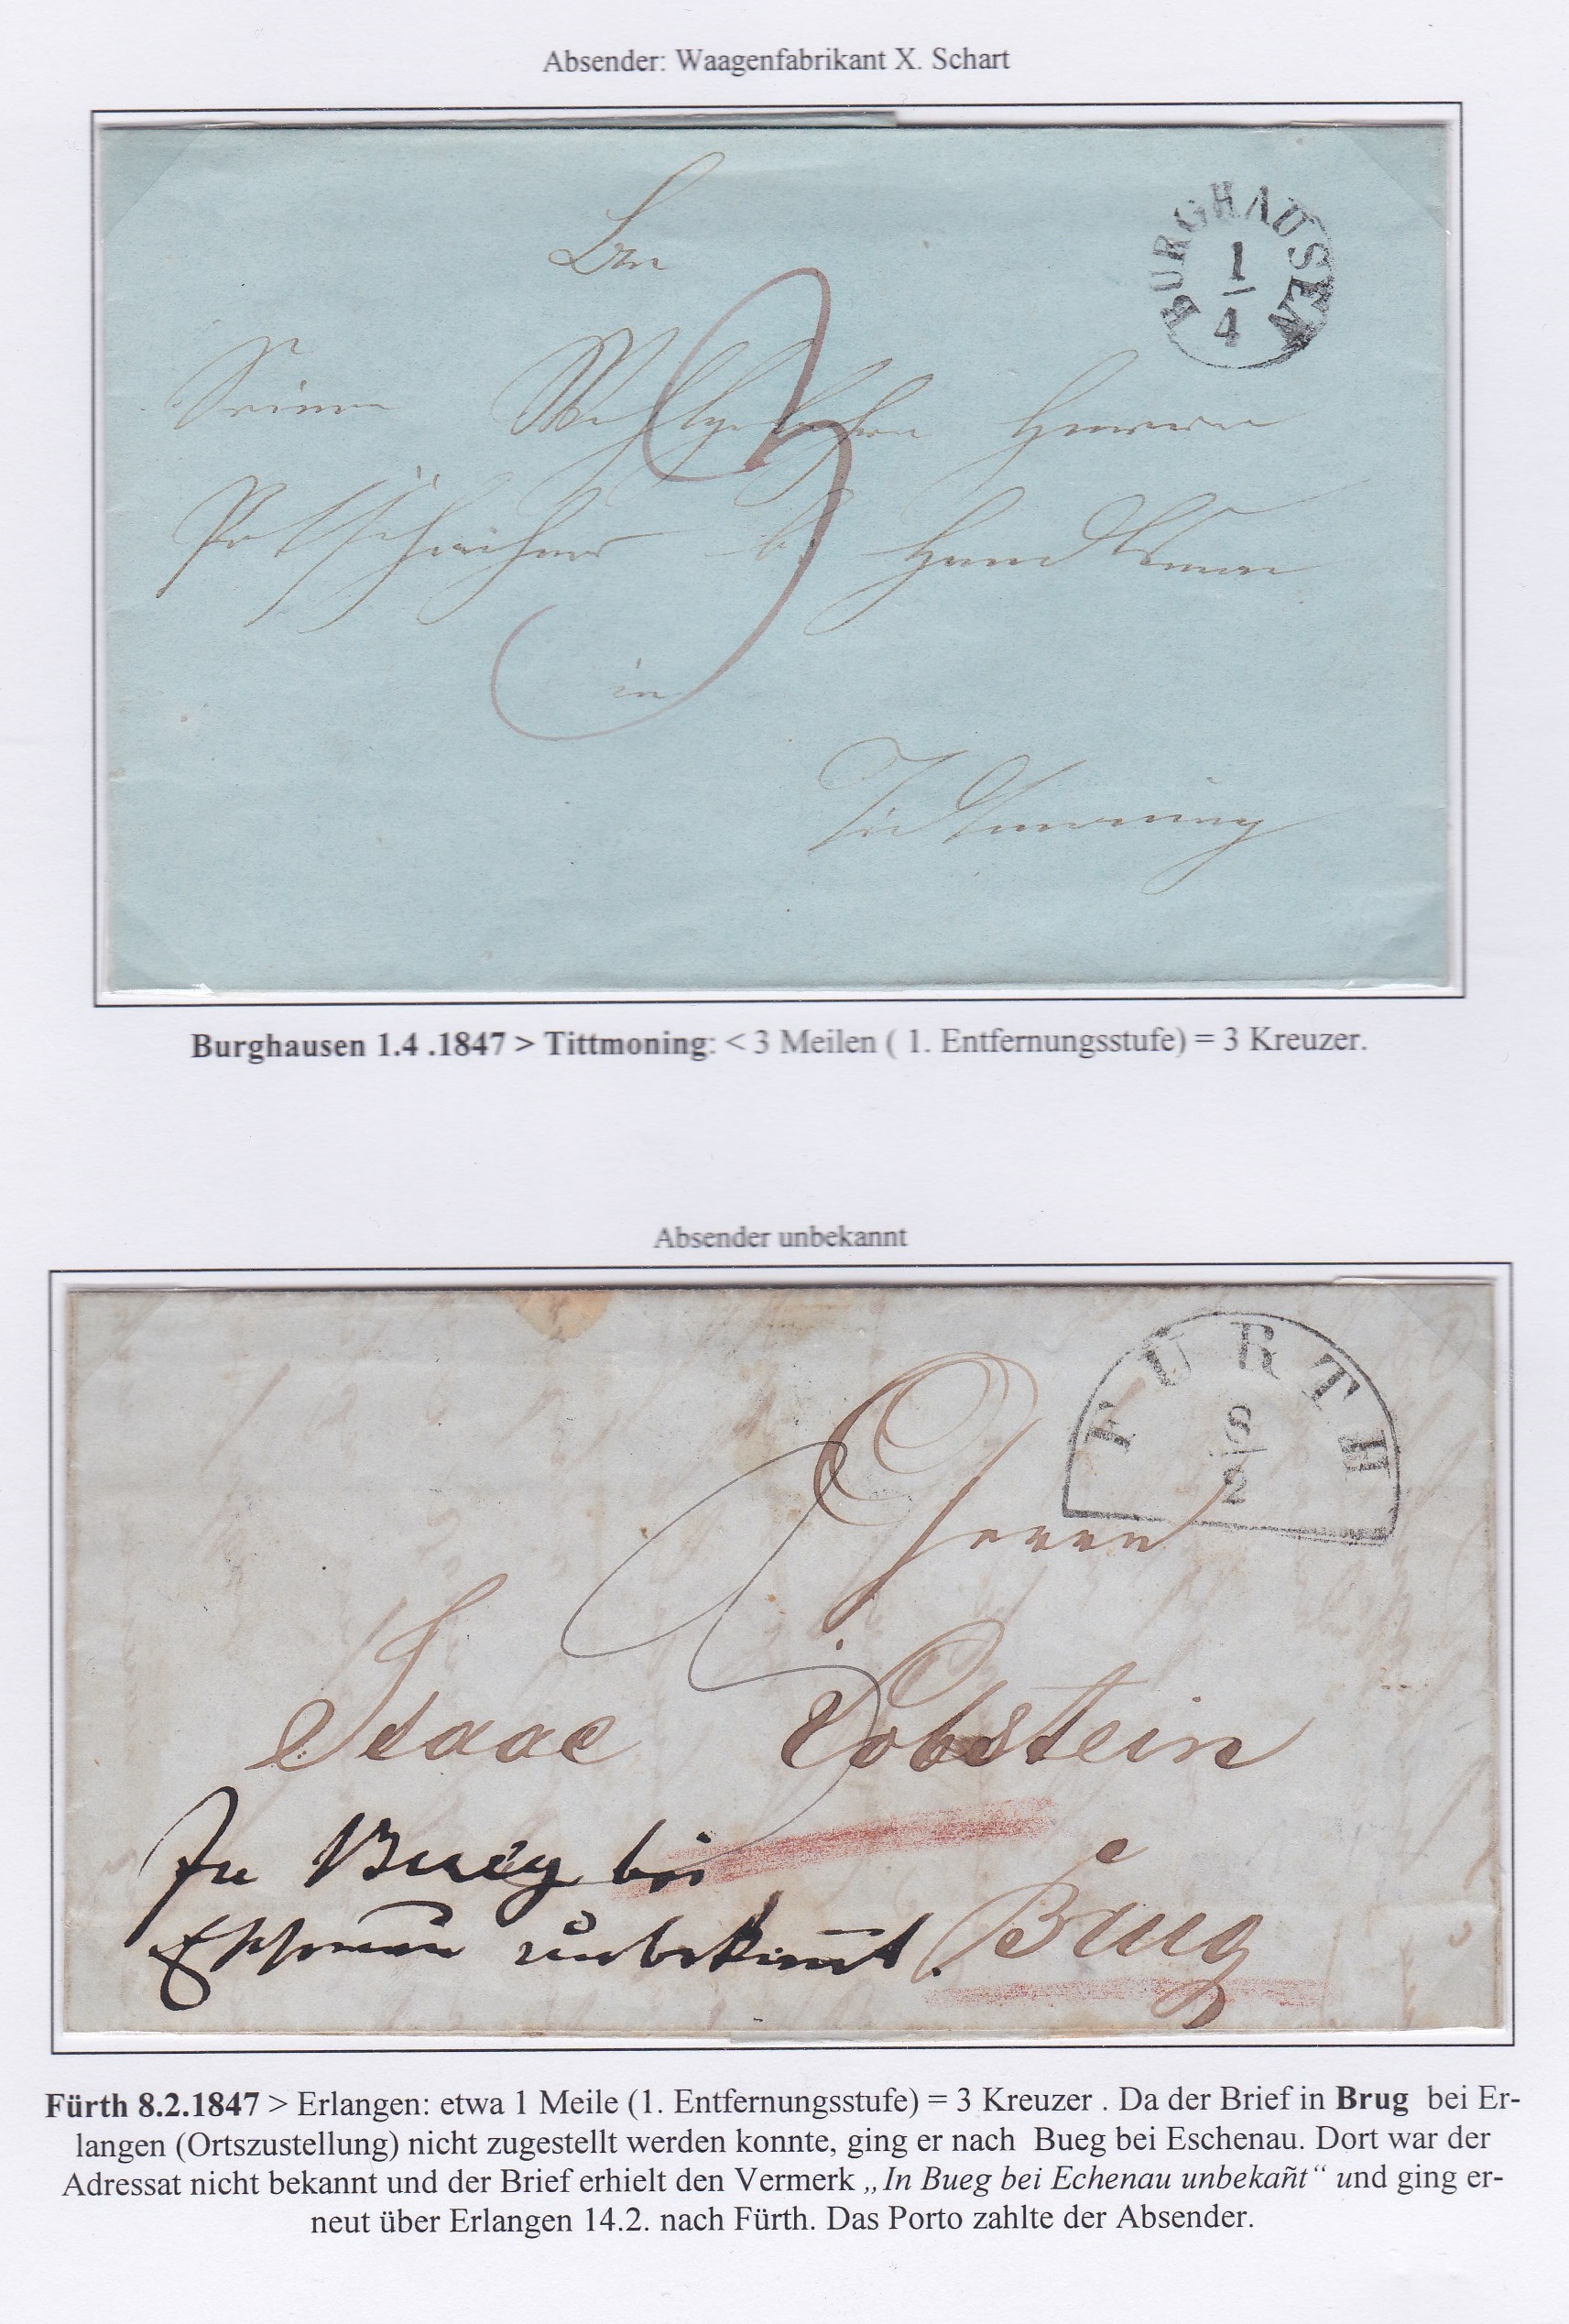 Absender: Waagenfabrikant X. Schart
BURGHAUSEN
1
4
Seiner Wohlgeboren Herrn
3
in
Tittmoning
Burghausen 1.4 .1847 > Tittmoning: < 3 Meilen ( 1. Entfernungsstufe) = 3 Kreuzer.
Absender unbekannt
FÜRTH
8
2
Herrn
Isaac
In Bueg bei
Eschenau unbekañt.
Brug
Fürth 8.2.1847 > Erlangen: etwa 1 Meile (1. Entfernungsstufe) = 3 Kreuzer . Da der Brief in Brug bei Er-
langen (Ortszustellung) nicht zugestellt werden konnte, ging er nach Bueg bei Eschenau. Dort war der
Adressat nicht bekannt und der Brief erhielt den Vermerk „In Bueg bei Echenau unbekañt“ und ging er-
neut über Erlangen 14.2. nach Fürth. Das Porto zahlte der Absender.